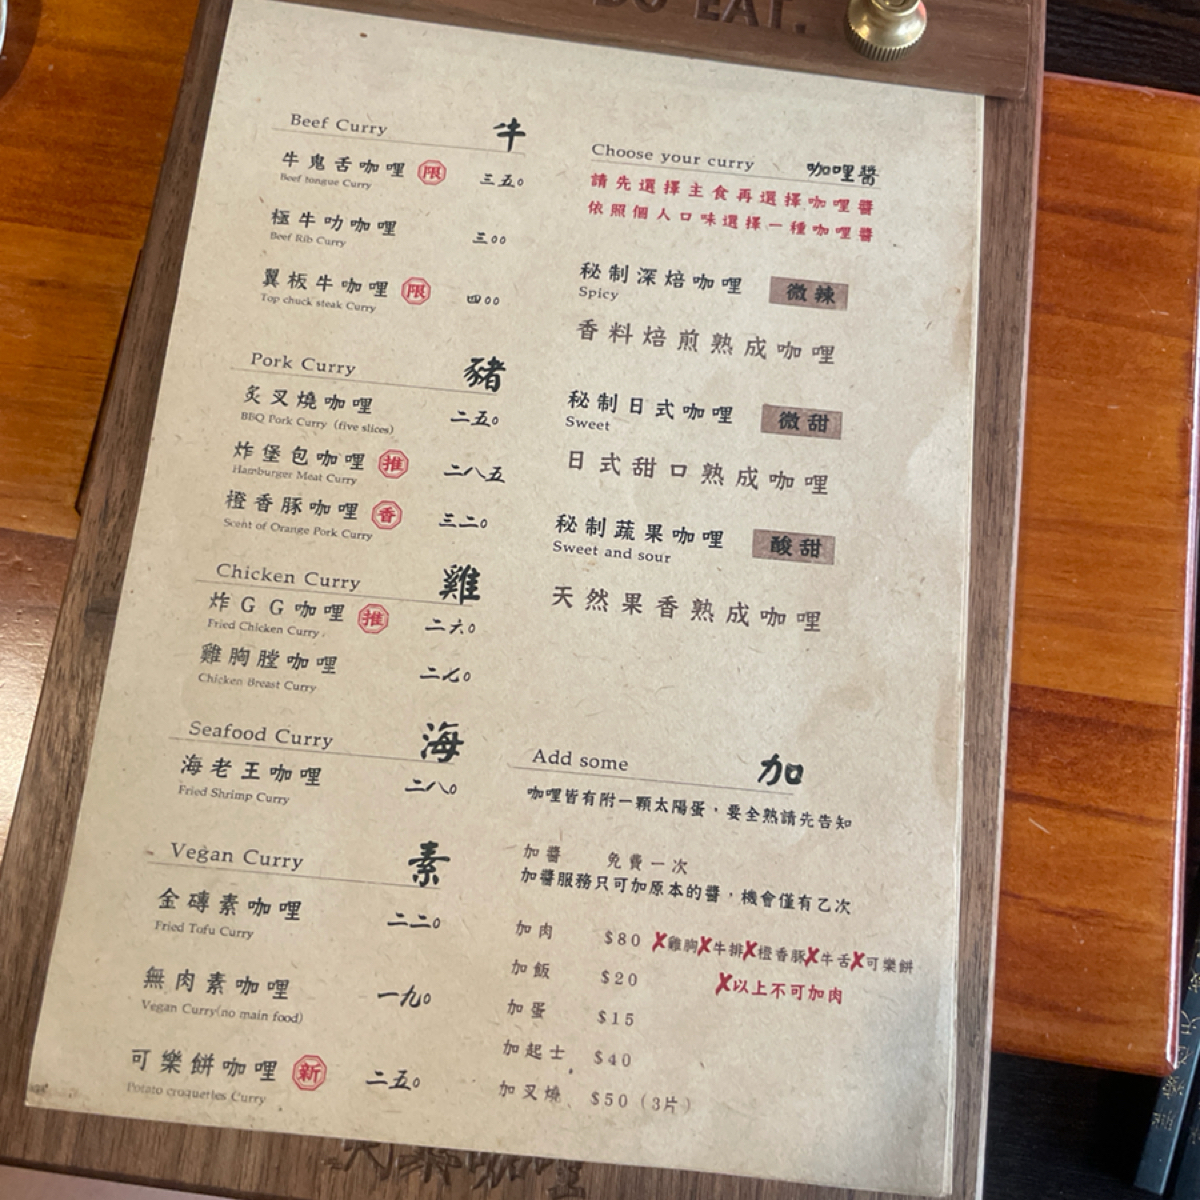 DO EAT.
Beef Curry 牛
牛鬼舌咖哩 限 三五〇
Beef tongue Curry
極牛叻咖哩 三〇〇
Beef Rib Curry
翼板牛咖哩 限 四〇〇
Top chuck steak Curry
Pork Curry 豬
炙叉燒咖哩 二五〇
BBQ Pork Curry (five slices)
炸堡包咖哩 推 二八五
Hamburger Meat Curry
橙香豚咖哩 香 三二〇
Scent of Orange Pork Curry
Chicken Curry 雞
炸GG咖哩 推 二六〇
Fried Chicken Curry
雞胸膛咖哩 二七〇
Chicken Breast Curry
Seafood Curry 海
海老王咖哩 二八〇
Fried Shrimp Curry
Vegan Curry 素
金磚素咖哩 二二〇
Fried Tofu Curry
無肉素咖哩 一九〇
Vegan Curry(no main food)
可樂餅咖哩 新 二五〇
Potato croquettes Curry
Choose your curry 咖哩醬
請先選擇主食再選擇咖哩醬
依照個人口味選擇一種咖哩醬
秘制深焙咖哩 微辣
Spicy
香料焙煎熟成咖哩
秘制日式咖哩 微甜
Sweet
日式甜口熟成咖哩
秘制蔬果咖哩 酸甜
Sweet and sour
天然果香熟成咖哩
Add some 加
咖哩皆有附一顆太陽蛋，要全熟請先告知
加醬 免費一次
加醬服務只可加原本的醬，機會僅有乙次
加肉 $80 ✗雞胸✗牛排✗橙香豚✗牛舌✗可樂餅
✗以上不可加肉
加飯 $20
加蛋 $15
加起士 $40
加叉燒 $50（3片）